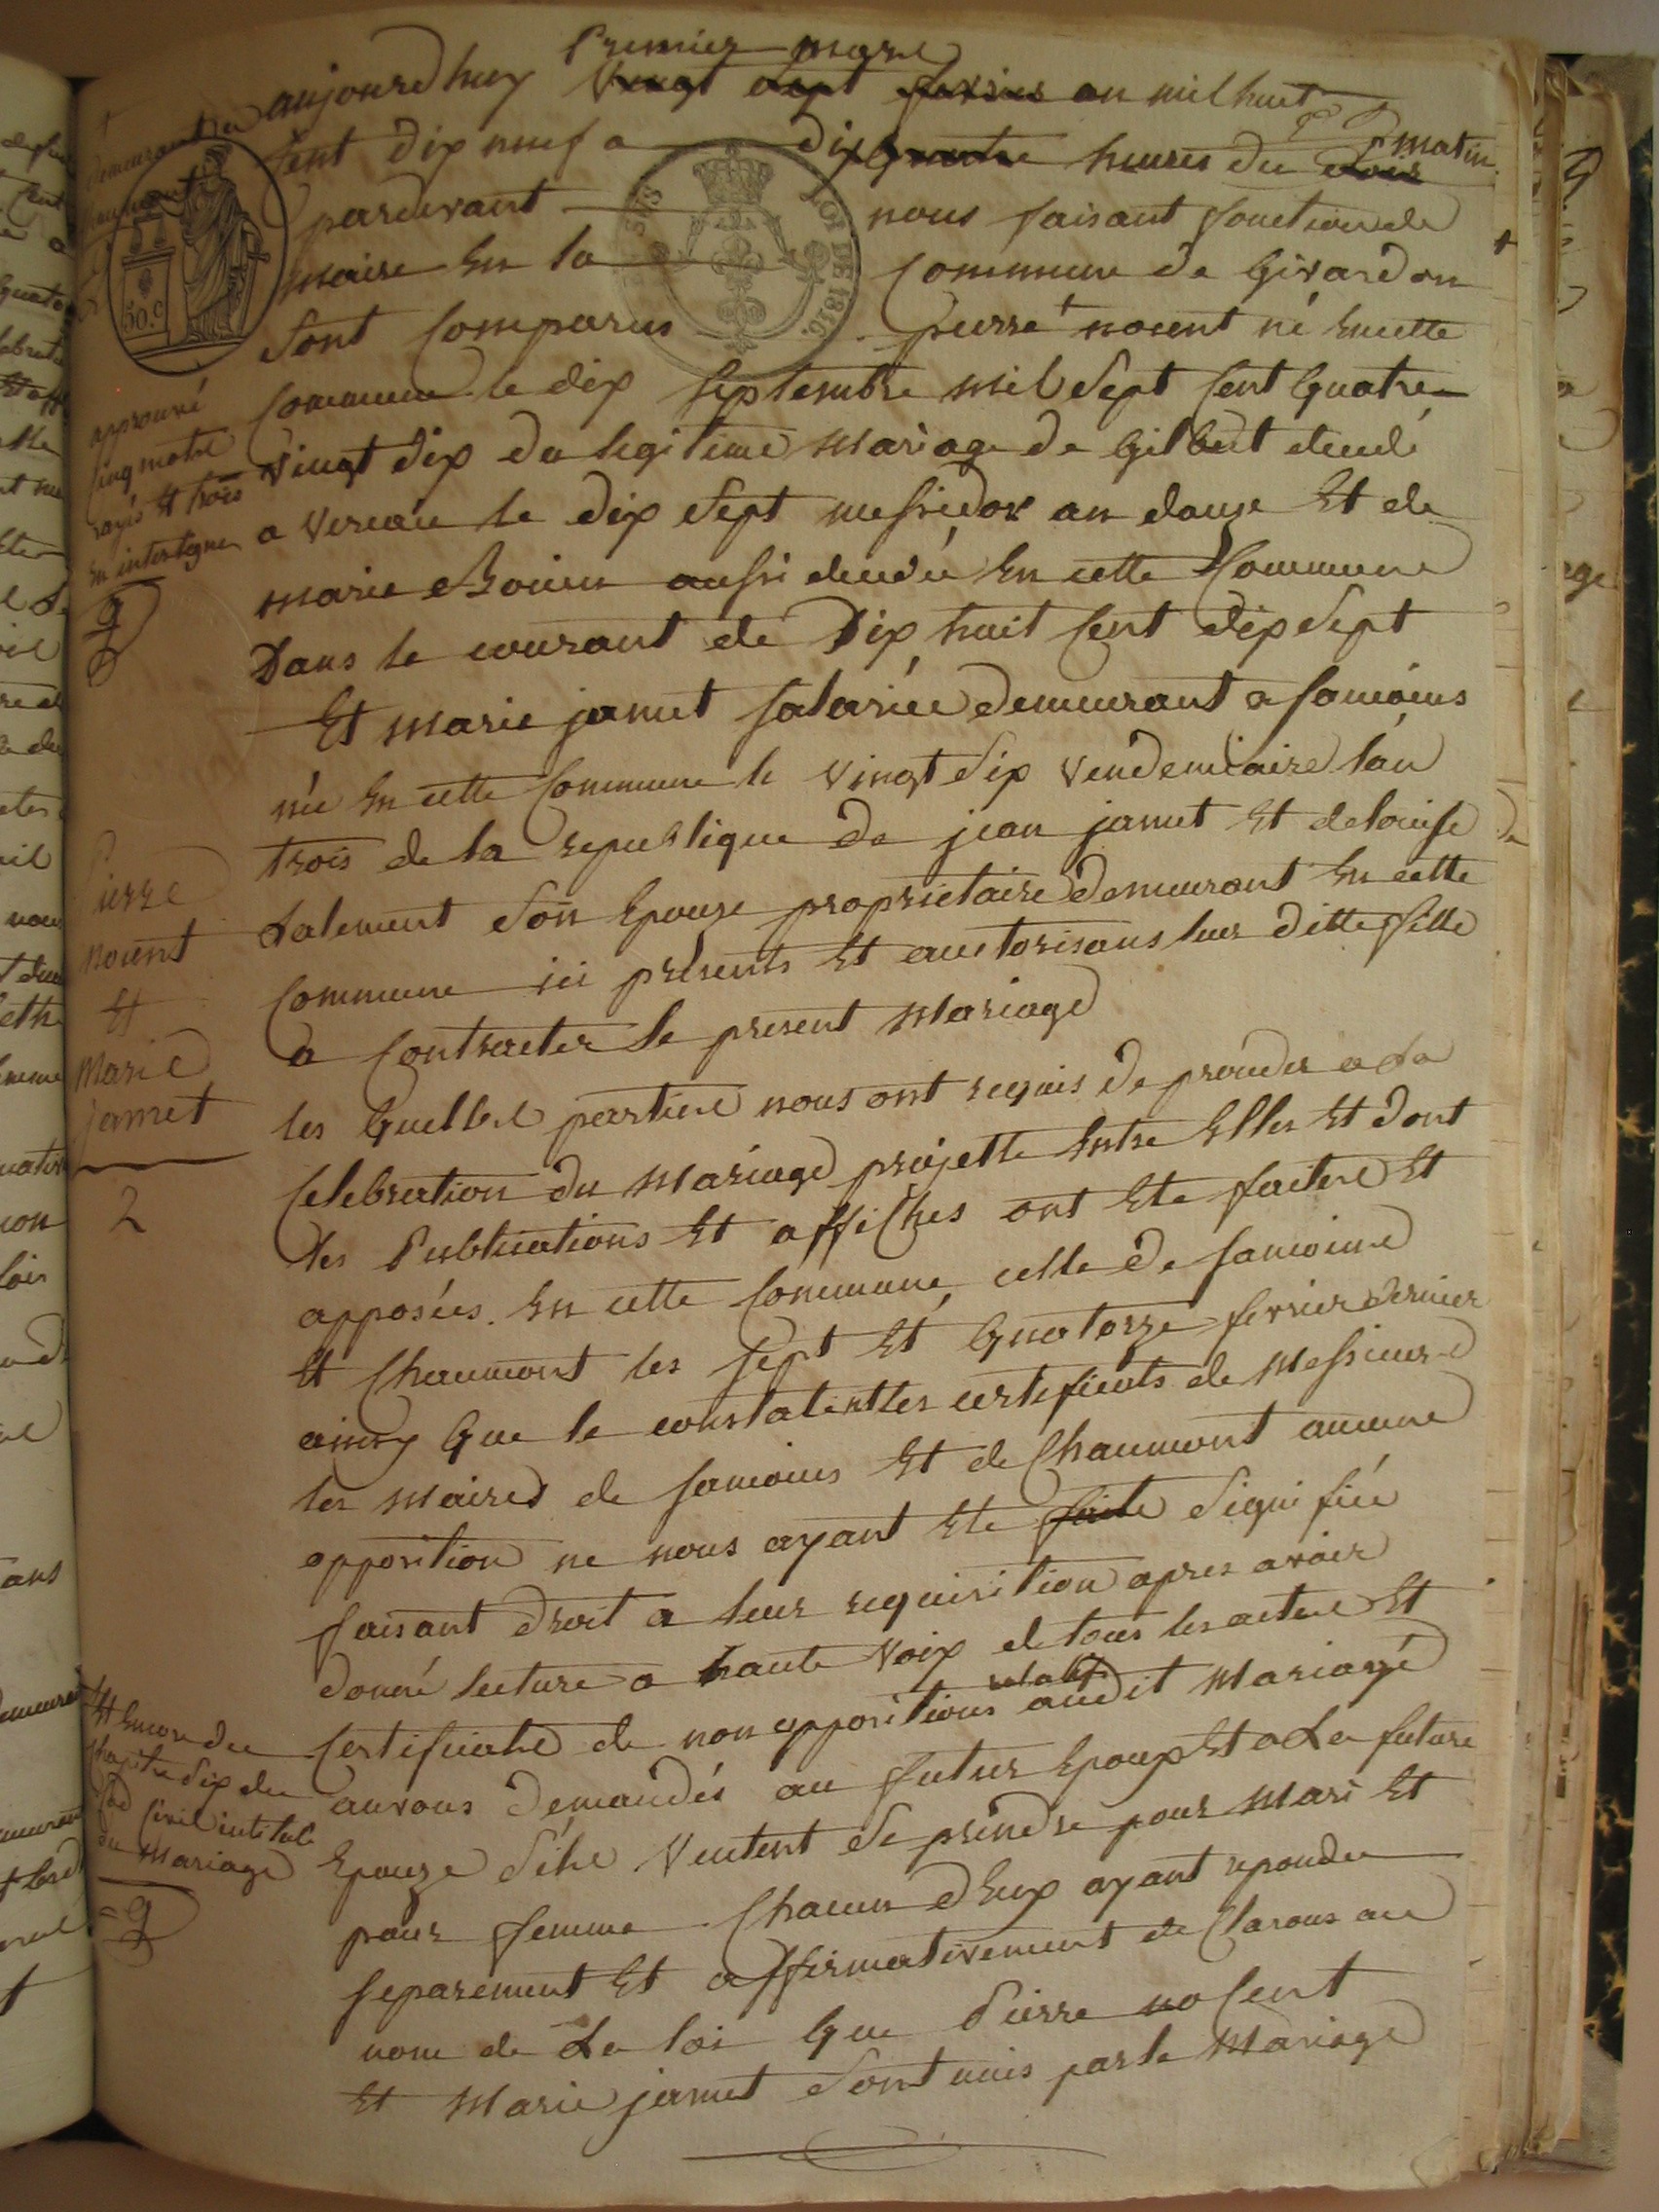 Premier mars
aujourdhuy Vingt Sept fevrier an mil huit
Cent dix neuf a dix quatre heures du Soir matin
pardevant nous faisant fonction de
maire En la Commune de Givardon
Sont Comparus pierre + nosent né En cette
Commune le dix Septembre mil Sept Cent Quatre
Vingt dix du legitime Mariage de Gilbert decedé
a Vereau le dix Sept messidor an douze Et de
marie Boüin aussi decedée En cette Commune
Dans le courant de Dix huit Cent dix Sept
Et Marie jamet Salariée demeurant a Sancoins
née En cette Commune le Vingt Six Vendemiaire l'an
trois de la republique de jean jamet Et de louise
dalement Son Epouze proprietaire demeurant En cette
Commune ici présents Et auctorisans leur ditte fille
a Contracter le present Mariage
les Quelles parties nous ont requis de proceder a La
Celebration du Mariage projetté Entre Elles Et dont
les Publications Et affiches ont Eté faites Et
apposées En cette Commune, celle de Sancoins
Et Chaumont les Sept Et Quatorze fevrier dernier
ainsy Que le constatent les certificats de Messieurs
les Maires de Sancoins Et de Chaumont aucune
opposition ne nous ayant Eté faite Signifiée
faisant droit a leur requisition apres avoir
donné lecture a haute Voix de tous les actes Et
relatifs
Certificats de non oppositions audit Mariage
avons demandés au futur Epoux Et a La future
Epouze S'ils Veulent Se prendre pour Mari Et
pour femme Chacun d'Eux ayant repondu
Separement Et affirmativement declarons au
nom de La loi Que Pierre nosent
Et Marie jamet Sont unis par le Mariage
+
demeurant a
Chaumont
30.C
TIMB DE 1816.
approuvé
Cinq mots
rayés Et trois
En interligne
Pierre
nosent
Et
Marie
jamet
2
Et Encore du
Chapitre Six du
Code Civil intitulé
du Mariage